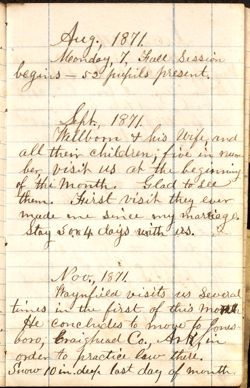 Aug., 1871.
Monday, 7, Fall Session
begins — 53 pupils present.
Sept., 1871.
Welborn & his Wife, and
all their children, five in num-
ber, visit us at the beginning
of the month. Glad to see
them. First visit they ever
made me since my marriage.
Stay 3 or 4 days with us.
Nov., 1871.
Waynfield visits us several
times in the first of this month.
He concludes to move to Jones-
boro, Craighead Co., Ark., in
order to practice law there.
Snow 10 in. deep last day of month.